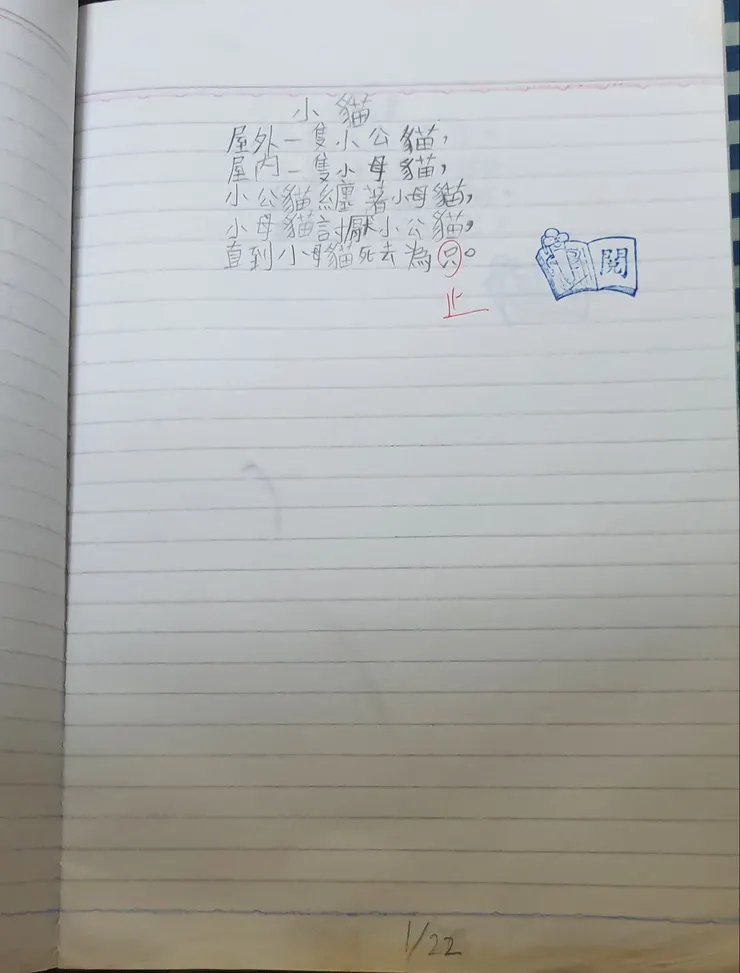 小貓
屋外一隻小公貓，
屋內一隻小母貓，
小公貓纏著小母貓，
小母貓討厭小公貓，
直到小母貓死去為只。
止
閱
1/22